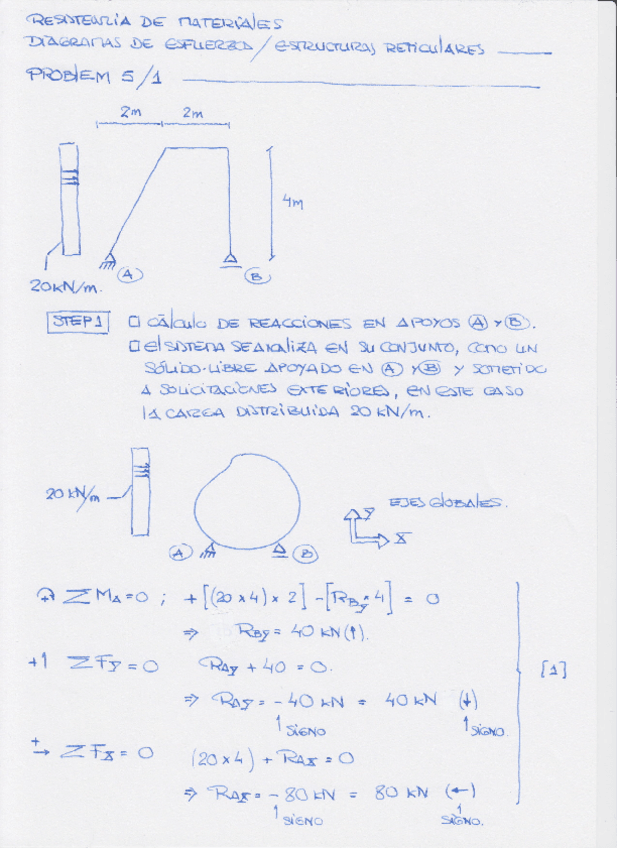 RESISTENCIA DE MATERIALES
DIAGRAMAS DE ESFUERZO / ESTRUCTURAS RETICULARES
PROBLEM 5/1
2m 2m
4m
A B
20 kN/m.
STEP 1 □ CÁLCULO DE REACCIONES EN APOYOS A Y B.
□ EL SISTEMA SE ANALIZA EN SU CONJUNTO, COMO UN
SÓLIDO-LIBRE APOYADO EN A Y B Y SOMETIDO
A SOLICITACIONES EXTERIORES, EN ESTE CASO
LA CARGA DISTRIBUIDA 20 kN/m.
20 kN/m
EJES GLOBALES.
Y
X
A B
↷+ ΣM_A = 0 ; +[(20 x 4) x 2] - [R_By x 4] = 0
⇒ R_By = 40 kN (↑).
+↑ ΣF_y = 0 R_Ay + 40 = 0.
⇒ R_Ay = - 40 kN = 40 kN (↓)
↑ SIGNO ↑ SIGNO.
[1]
+→ ΣF_x = 0 (20 x 4) + R_Ax = 0
⇒ R_Ax = - 80 kN = 80 kN (←)
↑ SIGNO ↑ SIGNO.